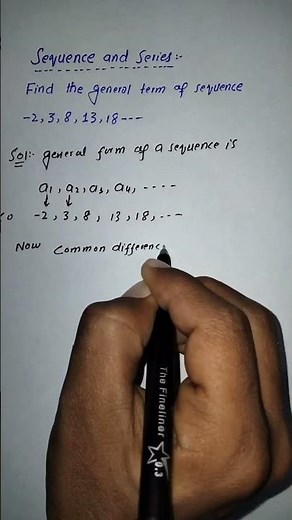 Sequence and Series:-
Find the general term of sequence
-2, 3, 8, 13, 18 ---
Sol:- general form of a sequence is
a1, a2, a3, a4, ----
so -2, 3, 8, 13, 18, ---
Now Common differenc
The Fineliner 0.3